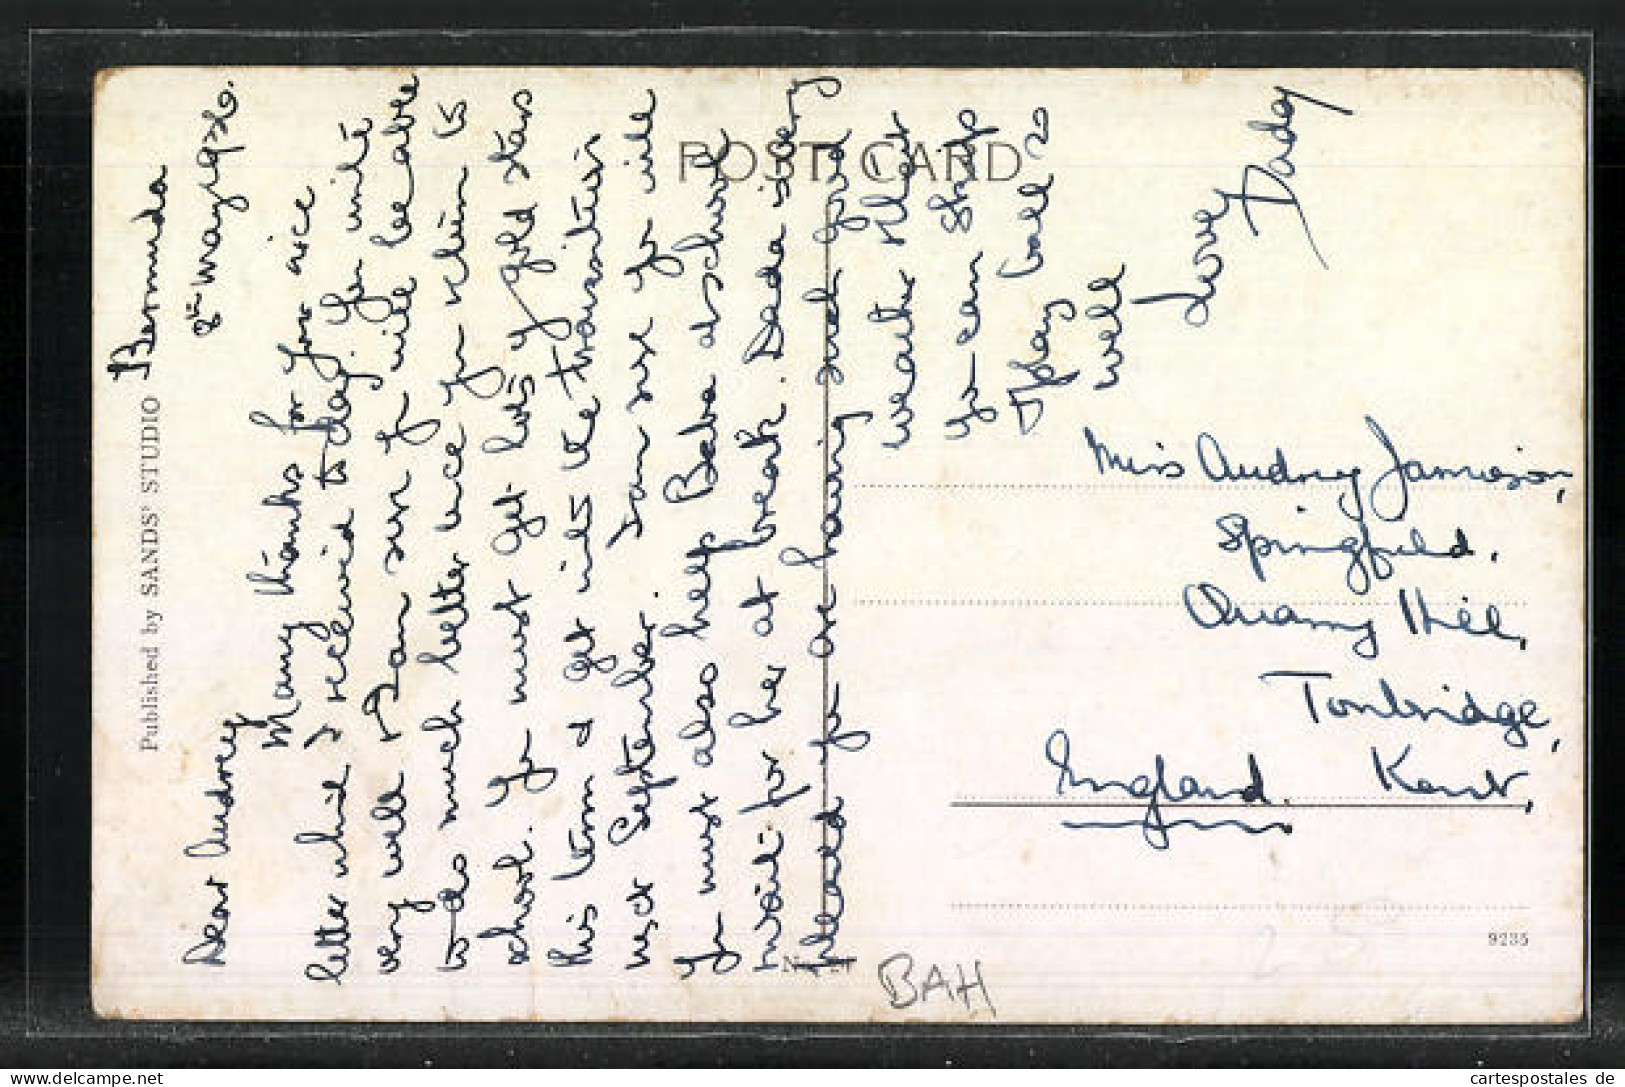 Published by SANDS' STUDIO
POST CARD
Bermuda
8th May 1950.
Dear Audrey
Many thanks for your nice
letter which I received to-day. You write
very well & I am sure you will be able
to do much better once you return to
school. You must get lots of gold stars
this term & get into the transition
next September. I am sure you will
You must also help Baba at school
wait for her at break. Dada is very
pleased you are having such good
weather & that
you can
play ball so
well
Love
Daddy
Miss Audrey Jamieson,
Springfield.
Quarry Hill,
Tonbridge,
Kent,
England.
9235
BAH
Fru10
cartespostales de